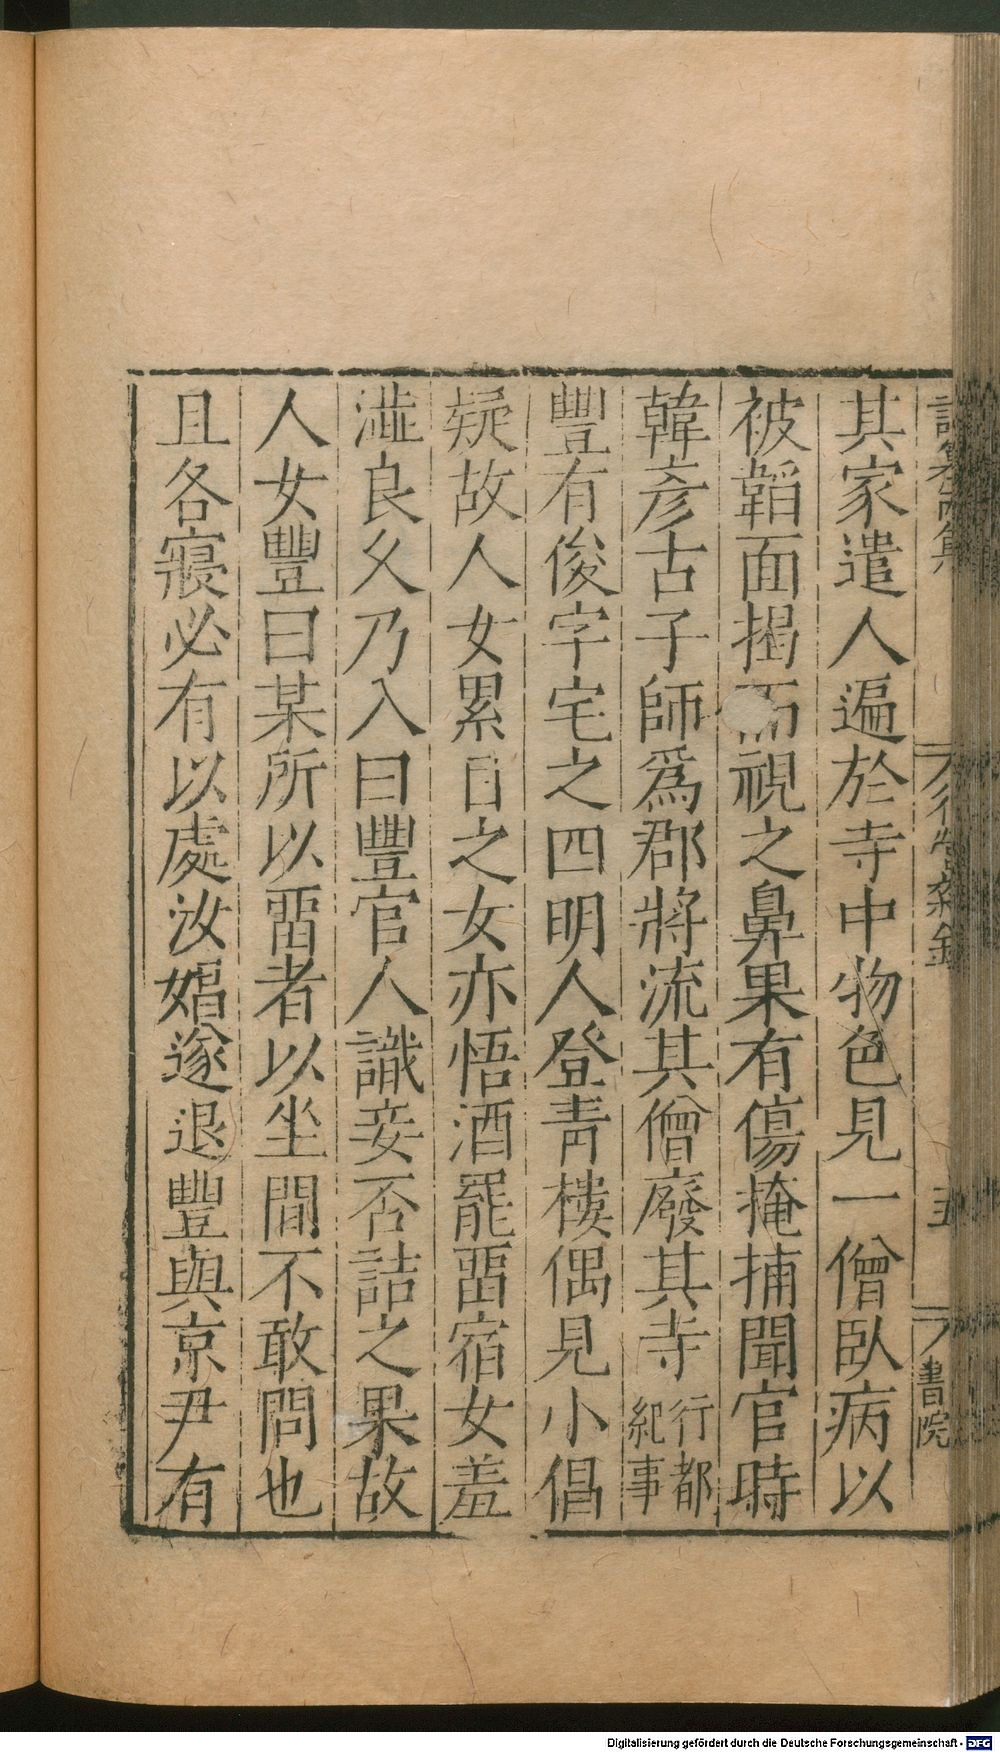 其家遣人遍於寺中物色見一僧臥病以
被韜面揭而視之鼻果有傷掩捕聞官時
韓彥古子師爲郡將流其僧廢其寺行都紀事
豐有俊字宅之四明人登青樓偶見小倡
疑故人女累日之女亦悟酒罷畱宿女羞
澁良久乃入曰豐官人識妾否詰之果故
人女豐曰某所以畱者以坐間不敢問也
且各寢必有以處汝娼遂退豐與京尹有
五
書院
Digitalisierung gefördert durch die Deutsche Forschungsgemeinschaft - DFG